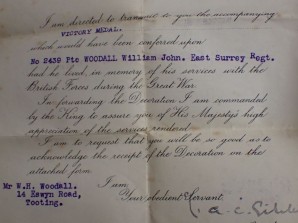 I am directed to transmit to you the accompanying
VICTORY MEDAL.
which would have been conferred upon
No 2439 Pte WOODALL William John. East Surrey Regt.
had he lived, in memory of his services with the
British Forces during the Great War.
In forwarding the Decoration I am commanded
by the King to assure you of His Majesty's high
appreciation of the services rendered.
I am to request that you will be so good as to
acknowledge the receipt of the Decoration on the
attached form.
I am,
Your obedient Servant,
Mr W.H. Woodall.
14 Eswyn Road,
Tooting.